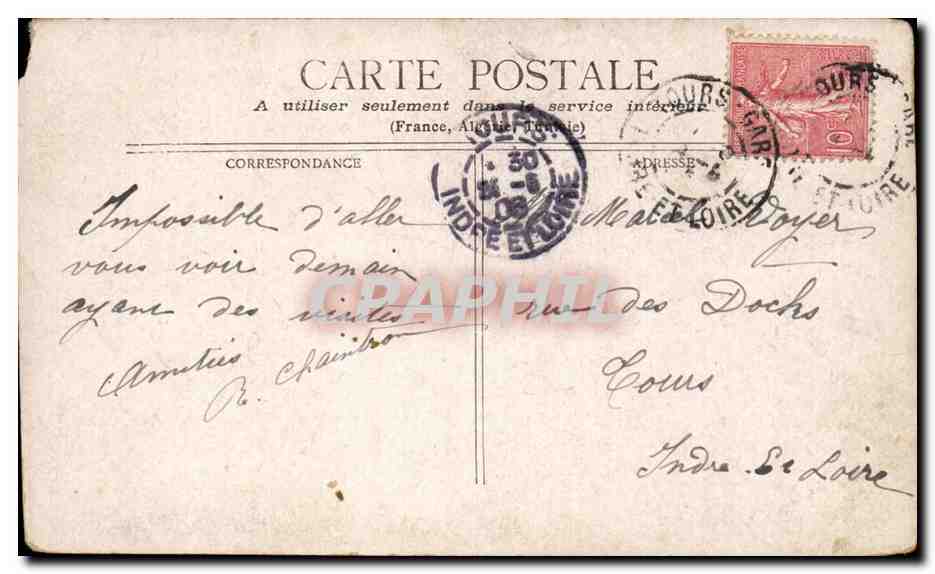 CARTE POSTALE
A utiliser seulement dans le service intérieur
(France, Algérie, Tunisie)
CORRESPONDANCE
ADRESSE
Impossible d'aller
vous voir demain
ayant des visites
Amitiés
R.
rue des Docks
Tours
Indre Et Loire
TOURS
30
INDRE ET LOIRE
TOURS GARE
ET LOIRE
OURS
GARE
ET LOIRE
10
CPAPHIL